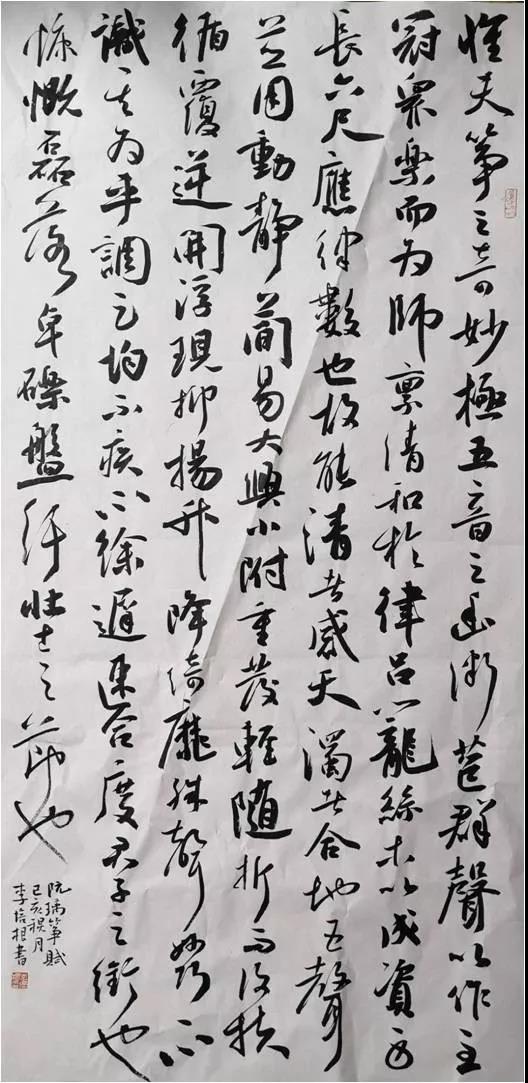 惟夫箏之奇妙極五音之幽微苞群聲以作主
冠衆樂而为師稟清和於律吕籠絲木以成資身
長六尺應律數也故能清者感天濁者合地五聲
並用動靜簡易大興小附重發輕随折而復扶
循覆逆開浮現抑揚升降綺靡殊聲妙巧不
識其为平調足均不疾不徐遲速合度君子之衢也
慷慨磊落卓礫盤紆壮士之節也
阮瑀箏賦
己亥禊月
李培根書